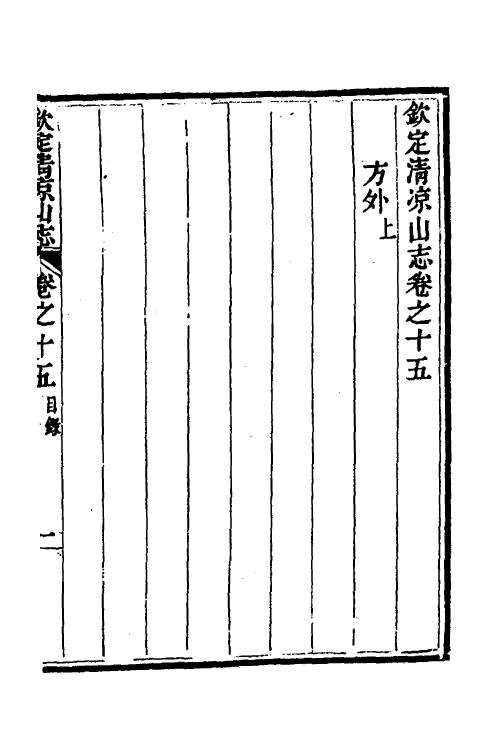 欽定清凉山志卷之十五
方外上
欽定清凉山志 卷之十五 目錄